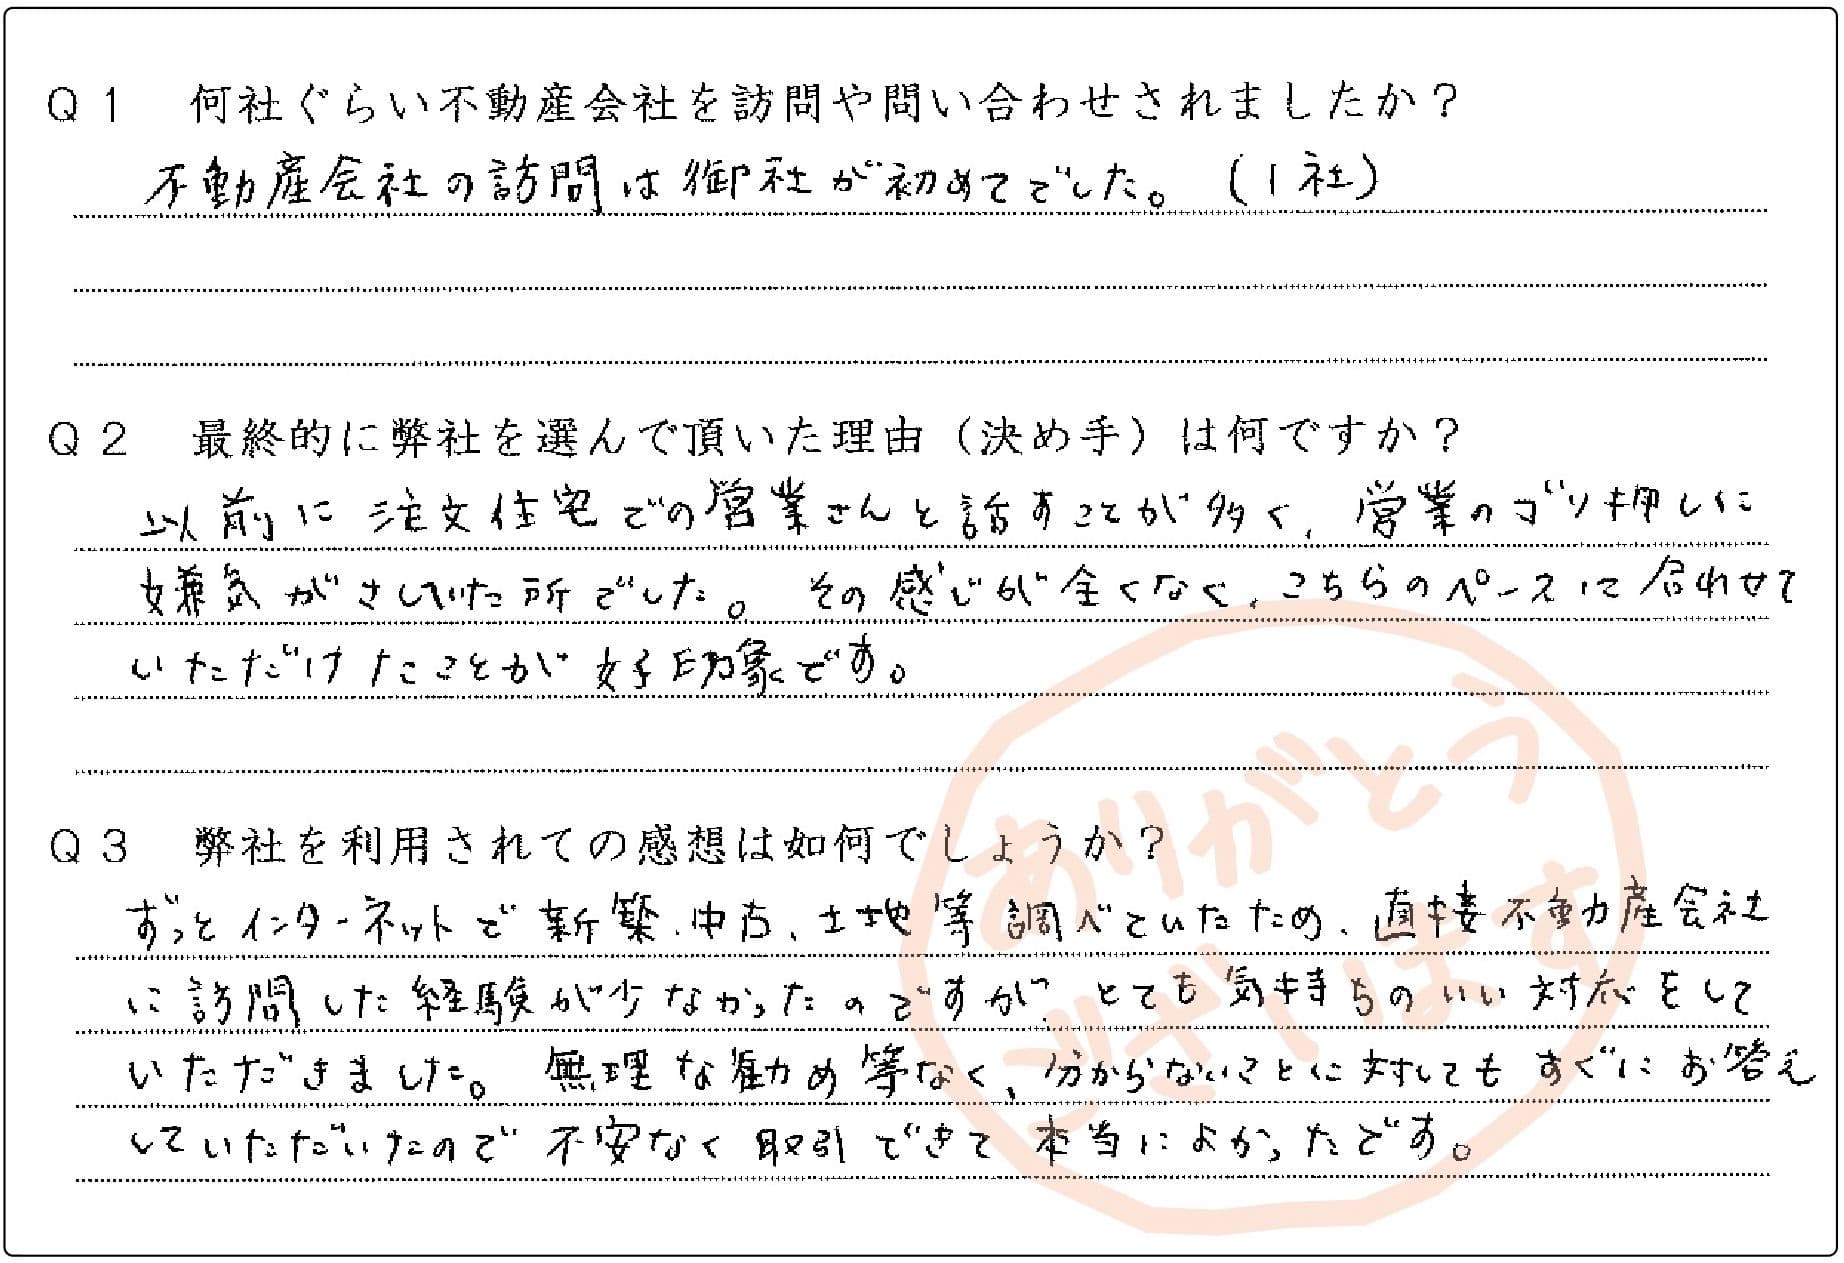 Q1　何社ぐらい不動産会社を訪問や問い合わせされましたか？
不動産会社の訪問は御社が初めてでした。（1社）
Q2　最終的に弊社を選んで頂いた理由（決め手）は何ですか？
以前に注文住宅での営業さんと話すことが多く、営業のゴリ押しに
嫌気がさしていた所でした。その感じが全くなく、こちらのペースに合わせて
いただけたことが好印象です。
Q3　弊社を利用されての感想は如何でしょうか？
ずっとインターネットで新築、中古、土地等調べていたため、直接不動産会社
に訪問した経験が少なかったのですが、とても気持ちのいい対応をして
いただきました。無理な勧め等なく、分からないことに対してもすぐにお答え
していただいたので不安なく取引できて本当によかったです。
ありがとう
ございます